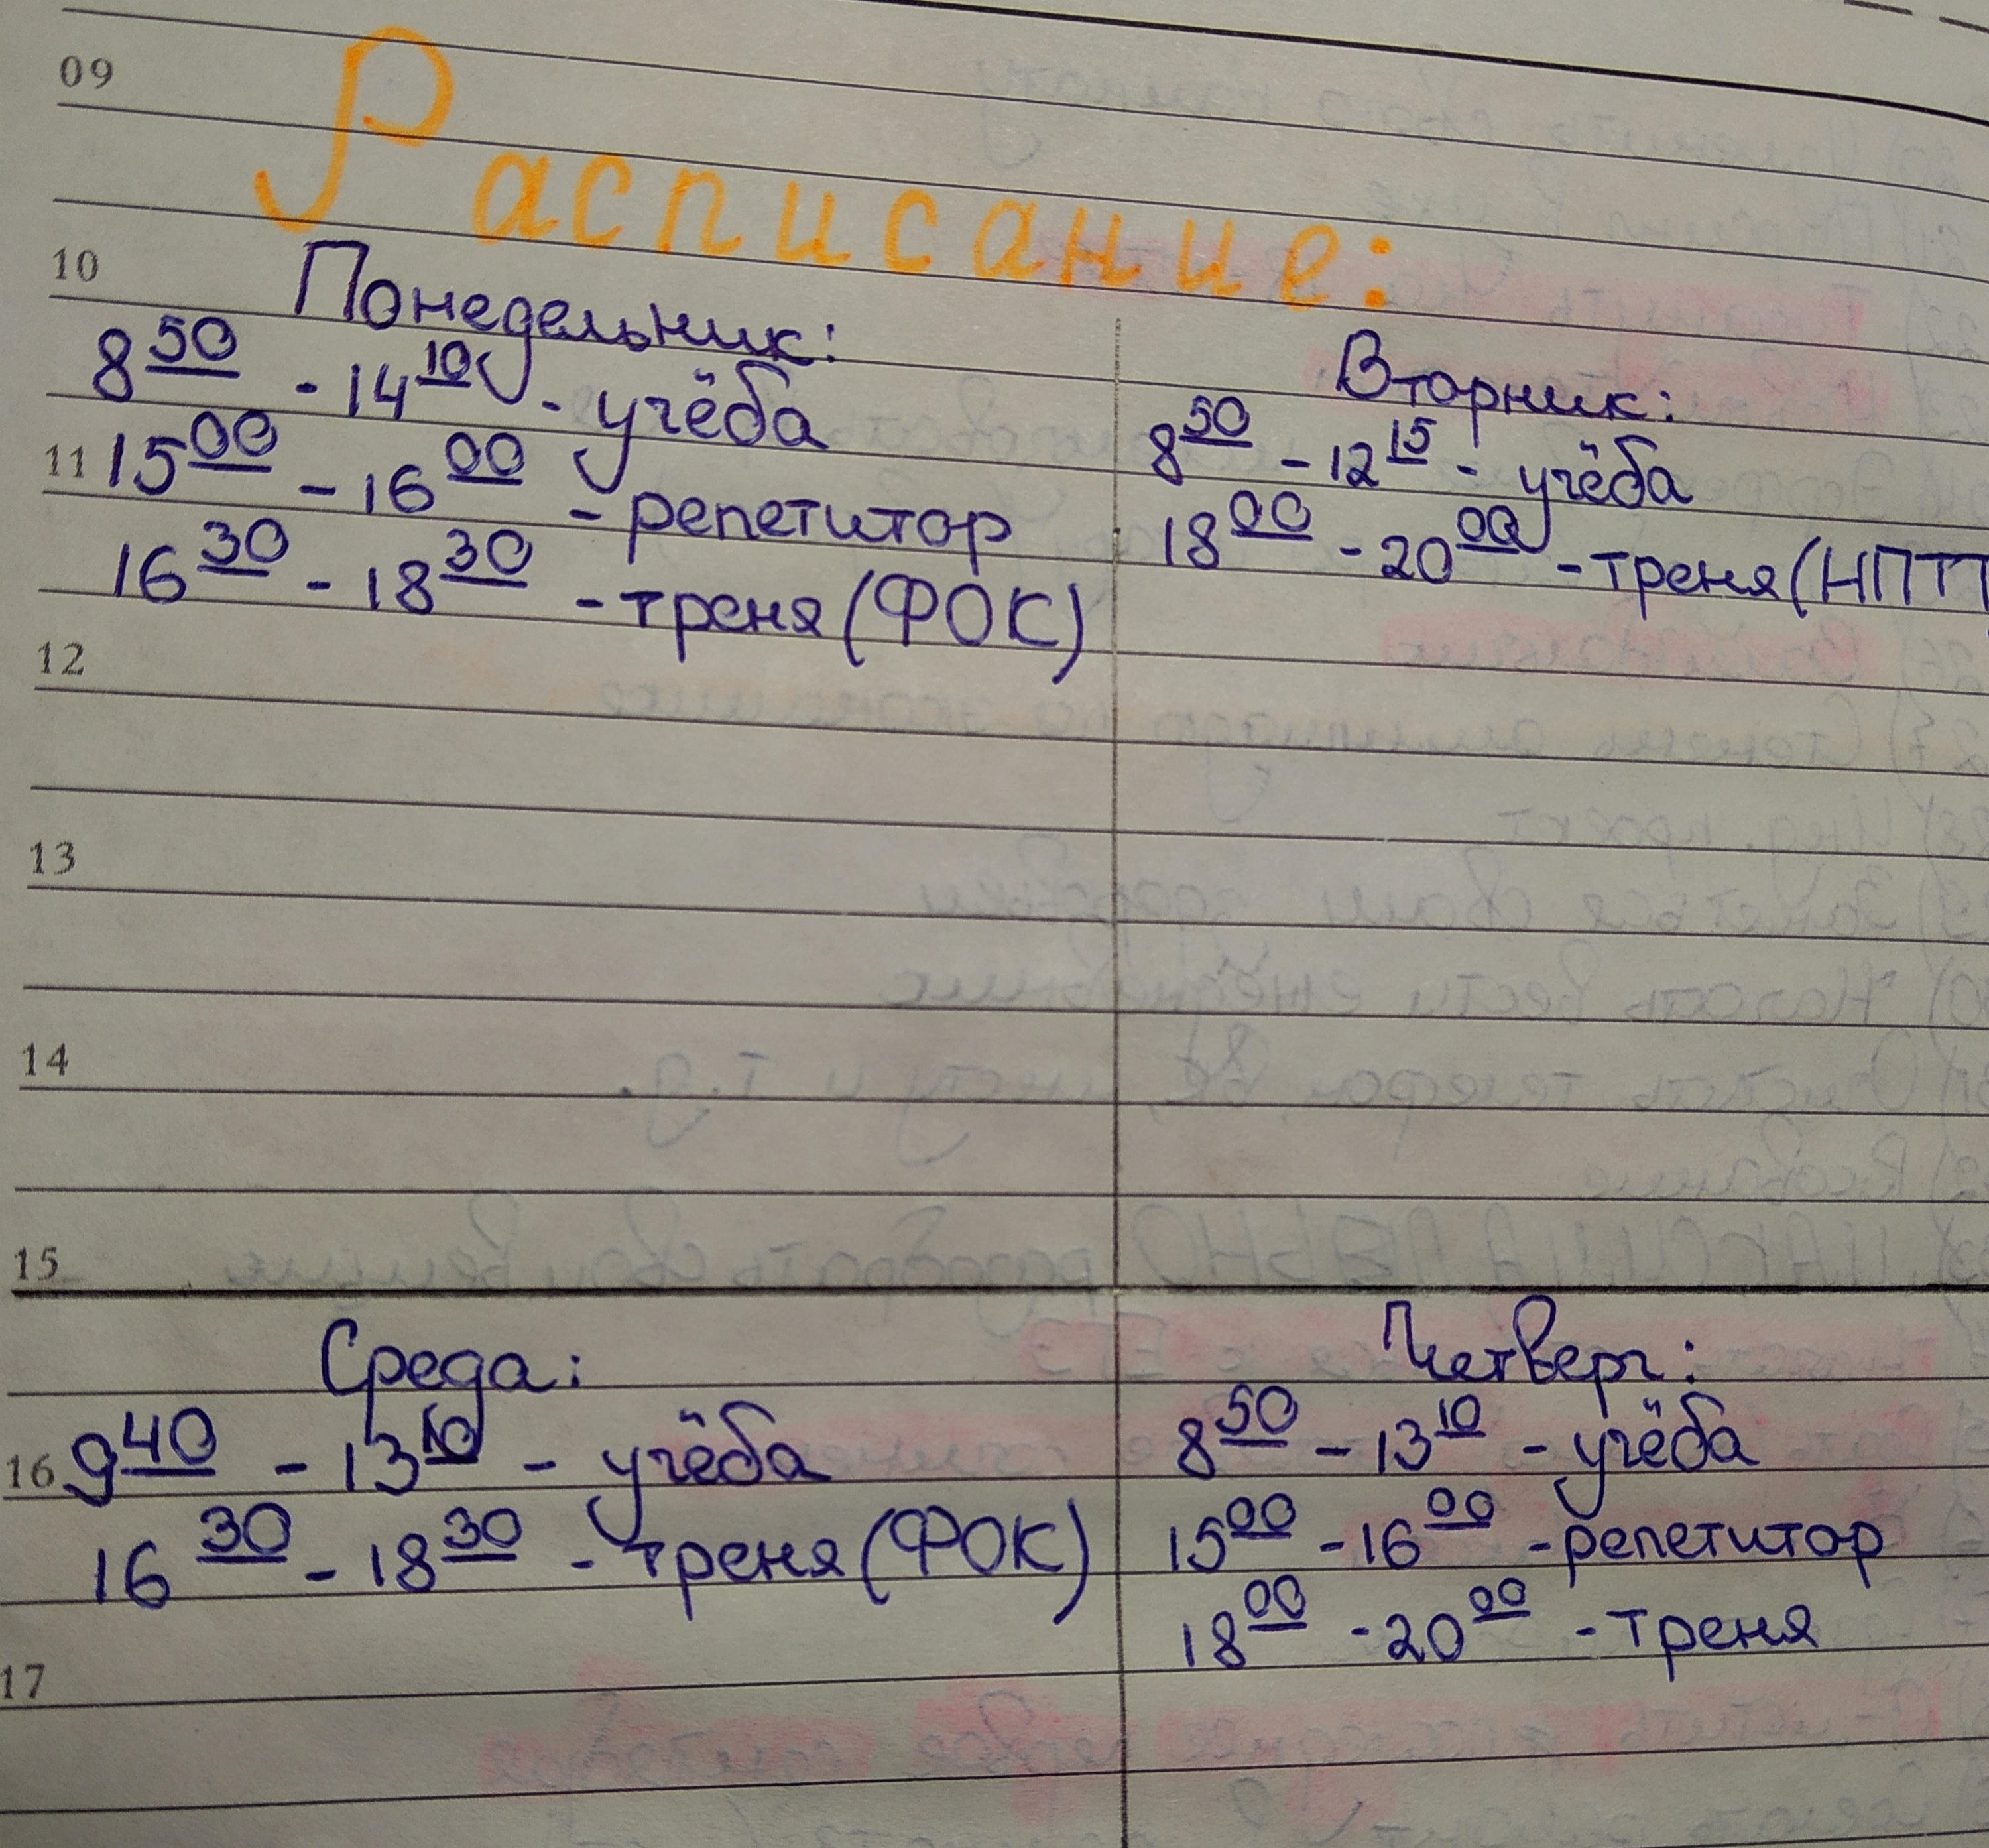 09
Расписание:
10
Понедельник:
8⁵⁰ - 14¹⁰ - учёба
11
15⁰⁰ - 16⁰⁰ - репетитор
16³⁰ - 18³⁰ - треня (ФОК)
Вторник:
8⁵⁰ - 12¹⁵ - учёба
18⁰⁰ - 20⁰⁰ - треня (НПТТ
12
13
14
15
Среда:
16
9⁴⁰ - 13¹⁰ - учёба
16³⁰ - 18³⁰ - треня (ФОК)
Четверг:
8⁵⁰ - 13¹⁰ - учёба
15⁰⁰ - 16⁰⁰ - репетитор
18⁰⁰ - 20⁰⁰ - треня
17